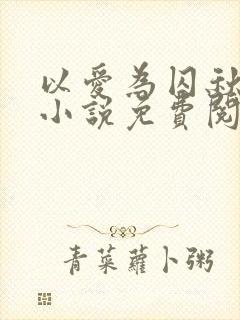 以愛為囚秋
小說免費閱
青菜蘿卜粥